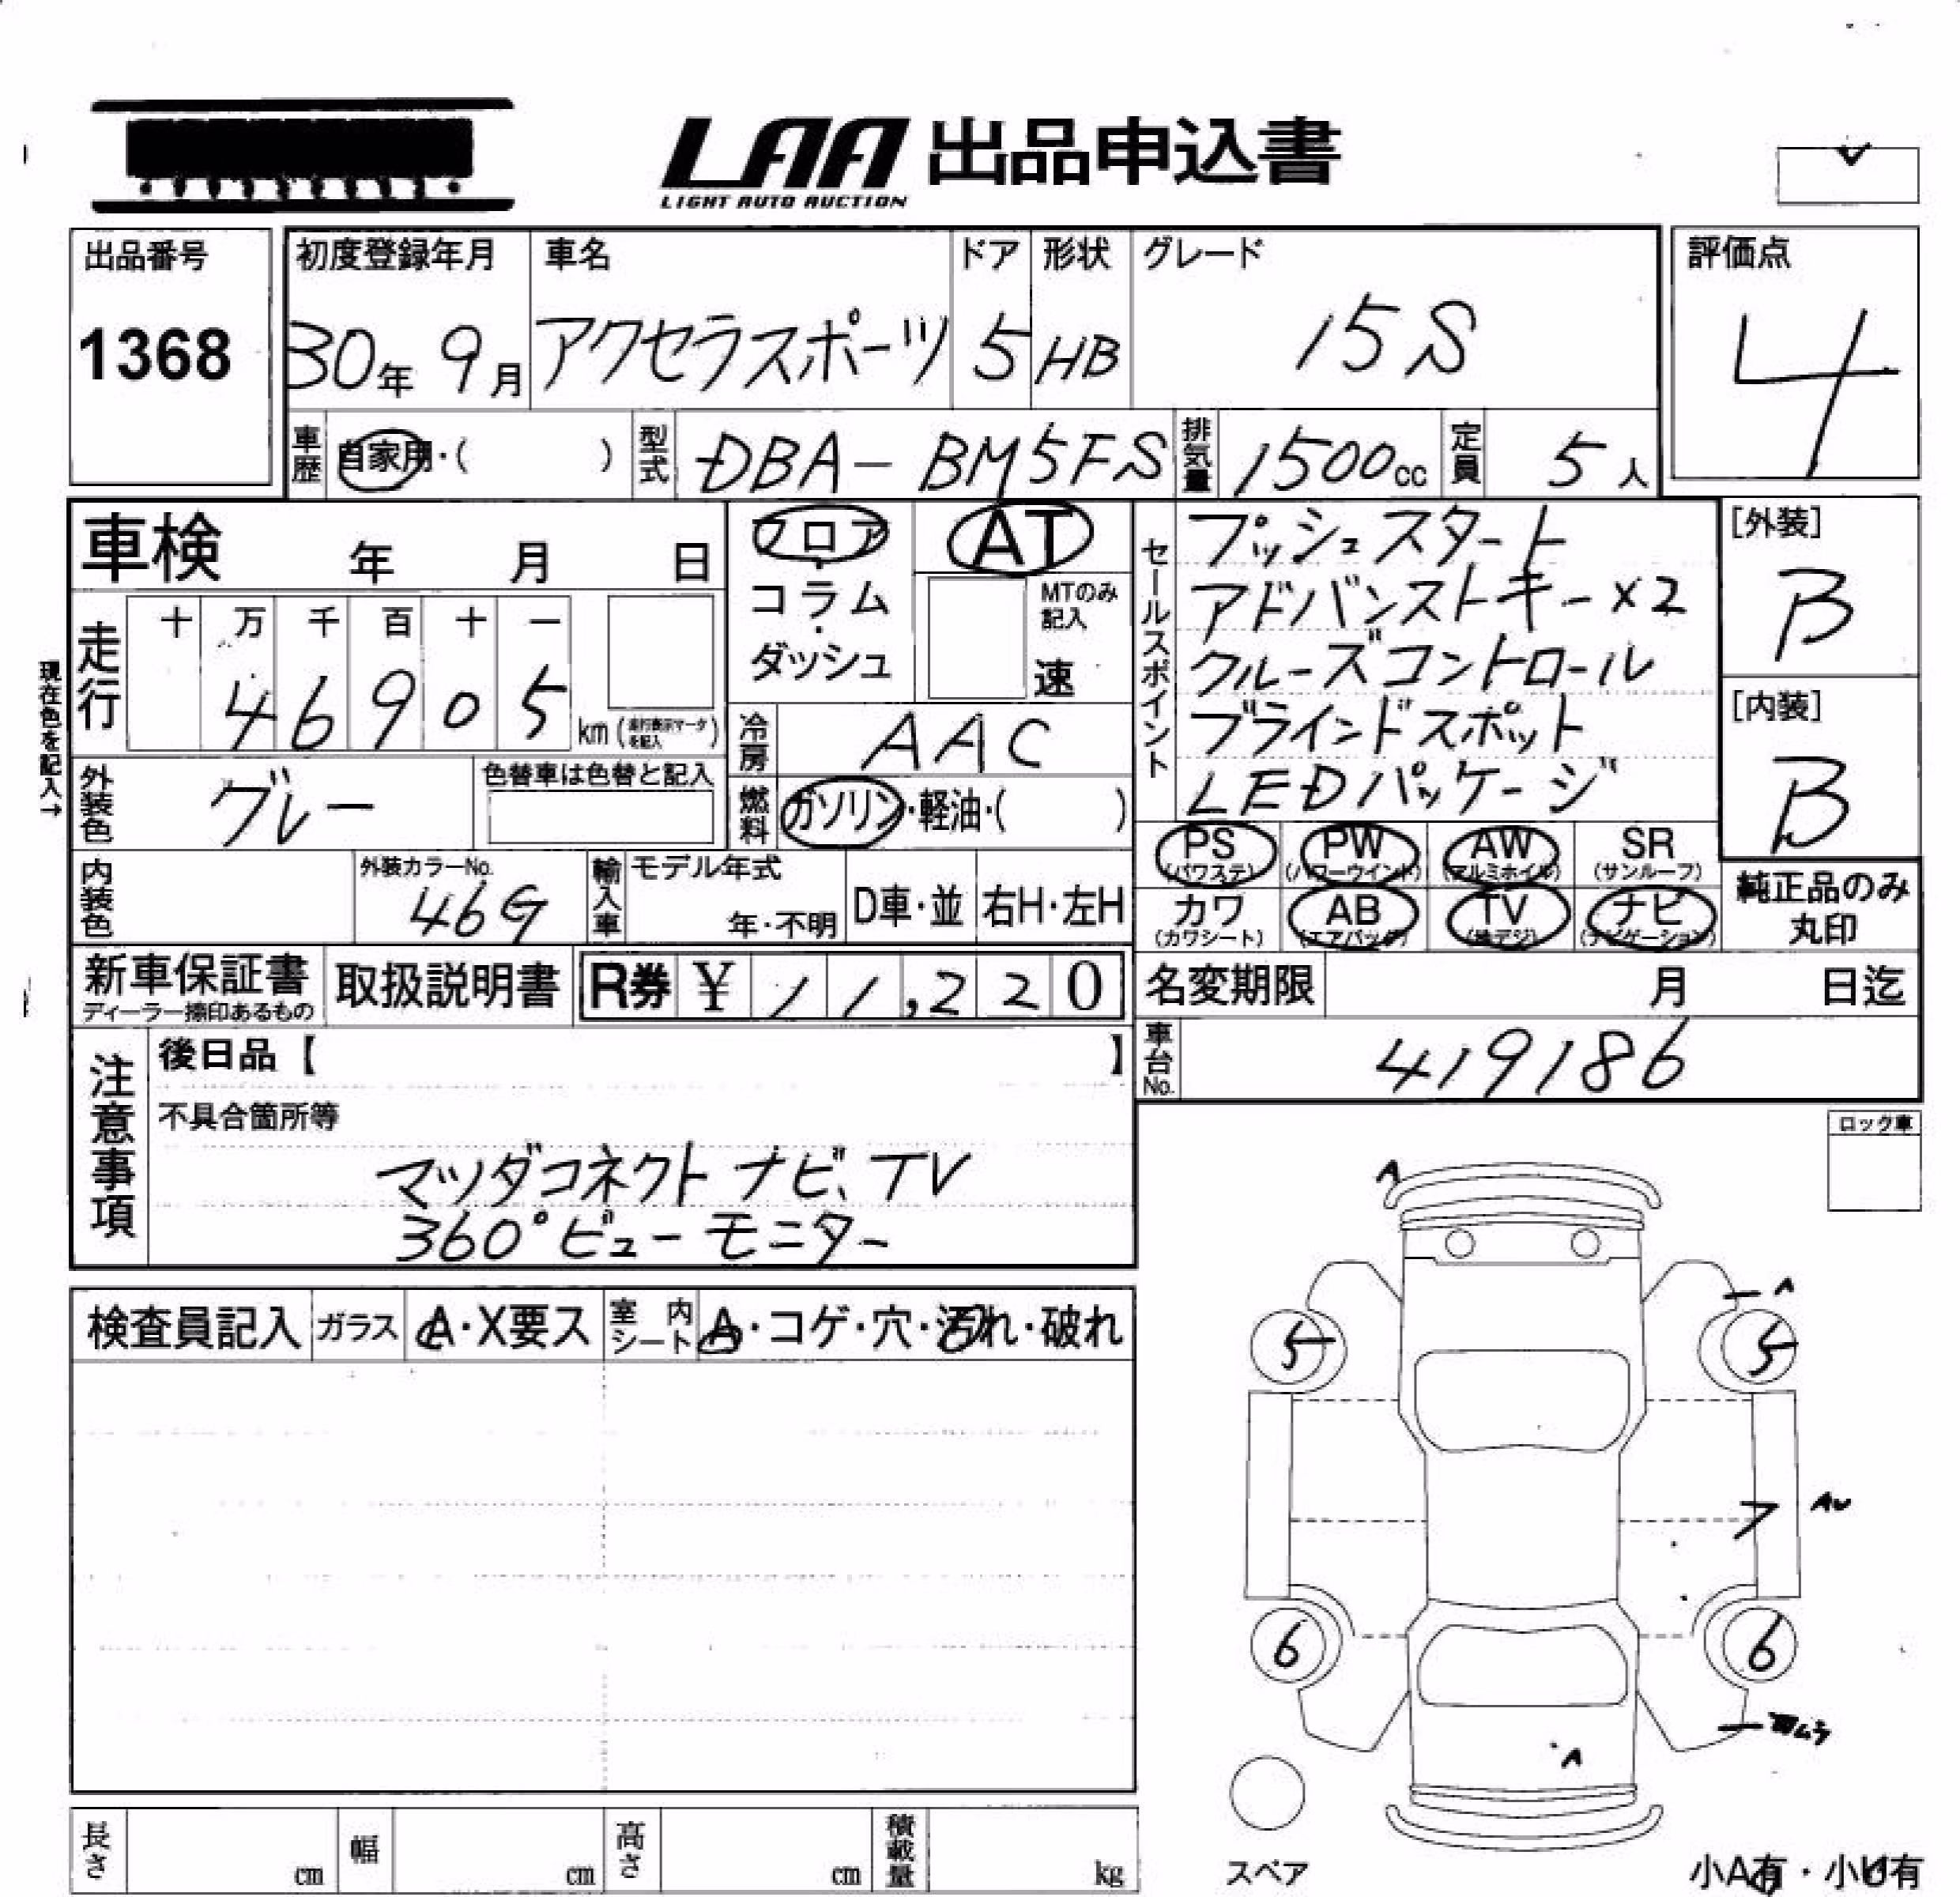 LAA 出品申込書
LIGHT AUTO AUCTION
出品番号
1368
初度登録年月 車名 ドア 形状 グレード
30年 9月 アクセラスポーツ 5 HB 15S
評価点
4
車歴 自家用・( ) 型式 DBA-BM5FS 排気量 1500cc 定員 5人
車検 年 月 日
フロア・コラム・ダッシュ
AT
MTのみ記入
速
走行
十 万 千 百 十 一
4 6 9 0 5 km (走行表示マークを記入)
現在色を記入→
冷房 AAC
外装色 グレー
色替車は色替と記入
燃料 ガソリン・軽油・( )
セールスポイント
プッシュスタート
アドバンストキー×2
クルーズコントロール
ブラインドスポット
LEDパッケージ
[外装]
B
[内装]
B
PS (パワステ) PW (パワーウインド) AW (アルミホイル) SR (サンルーフ)
カワ (カワシート) AB (エアバッグ) TV (地デジ) ナビ (ナビゲーション)
純正品のみ丸印
内装色
外装カラーNo.
46G
輸入車 モデル年式
年・不明 D車・並 右H・左H
新車保証書
ディーラー捺印あるもの
取扱説明書
R券 ¥ 11,220
名変期限 月 日迄
車台No. 419186
注意事項
後日品【 】
不具合箇所等
マツダコネクト ナビ、TV
360°ビューモニター
ロック車
検査員記入 ガラス A・X要ス 室内シート A・コゲ・穴・汚れ・破れ
A
A
5 5
7 AU
6 6
A
スペア
長さ cm 幅 cm 高さ cm 積載量 kg
小A有・小U有